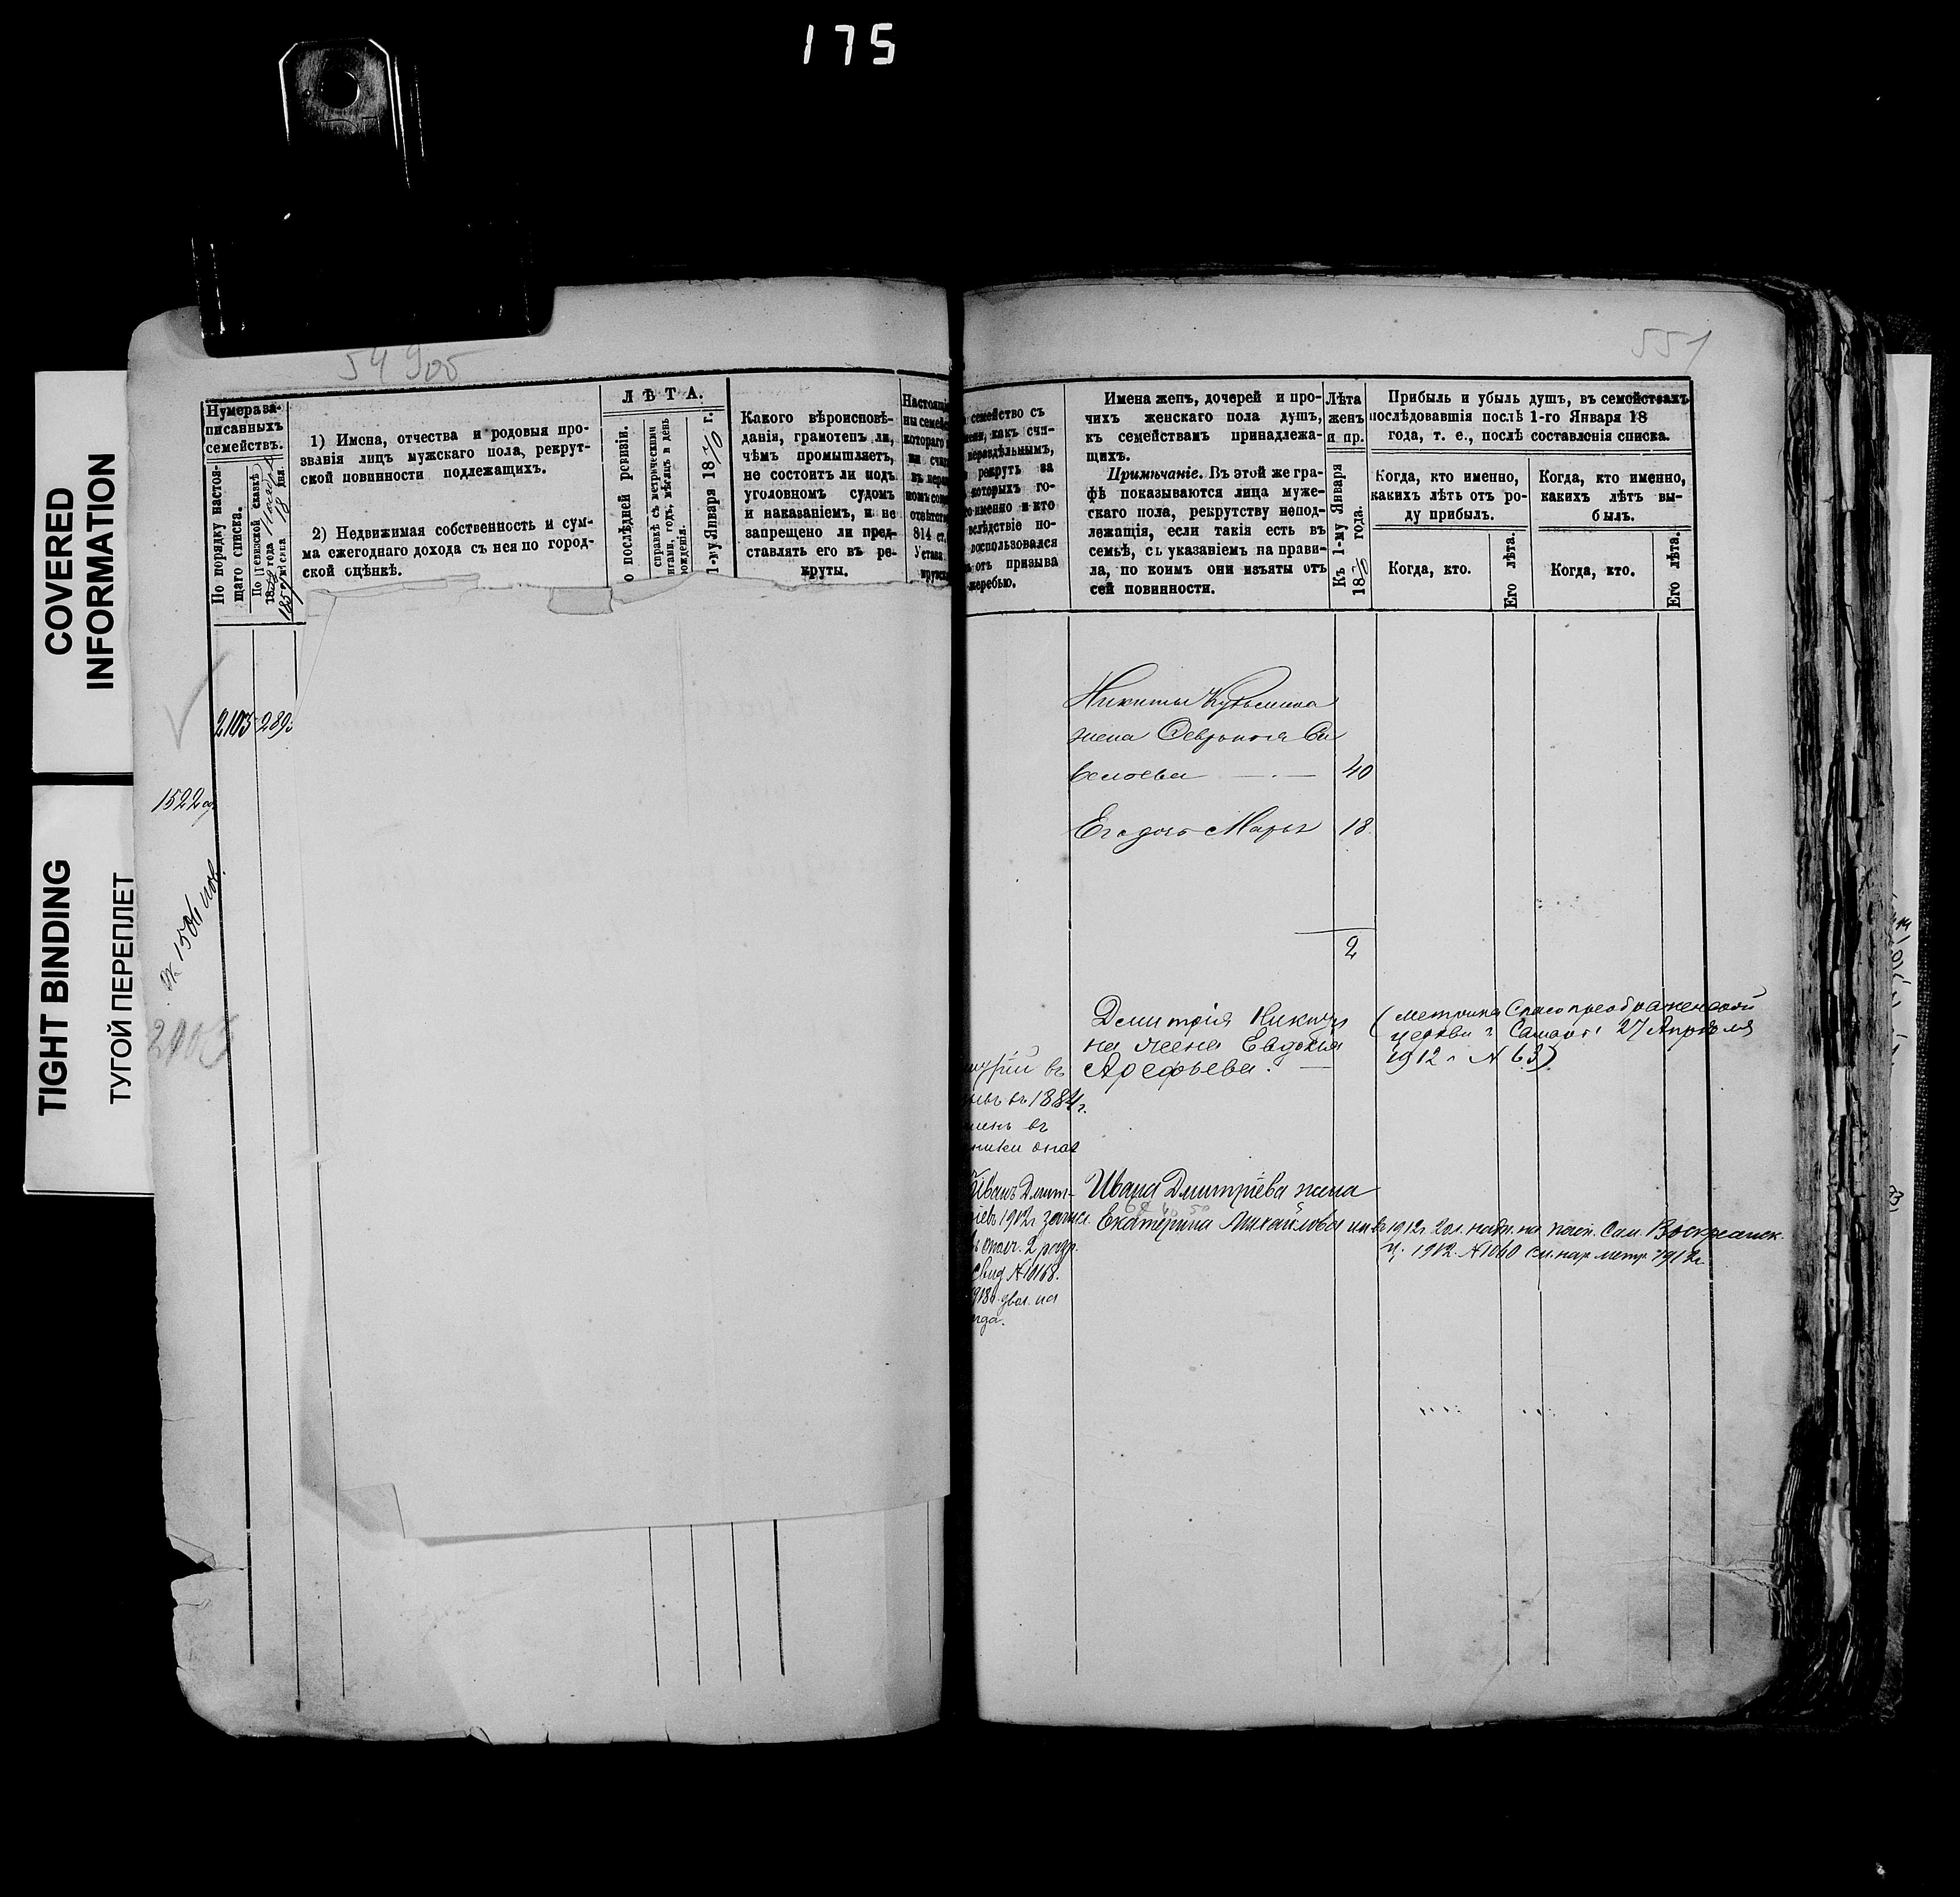 175
COVERED
INFORMATION
TIGHT BINDING
ТУГОЙ ПЕРЕПЛЕТ
54 905
551
Нумера за-
писанныхъ
семействъ.
По порядку настоя-
щаго списка.
По ревизской сказкѣ
1858 года
1857 мѣсяца 18 дня.
1) Имена, отчества и родовыя про-
званія лицъ мужскаго пола, рекрут-
ской повинности подлежащихъ.
2) Недвижимая собственность и сум-
ма ежегоднаго дохода съ нея по город-
ской оцѣнкѣ.
ЛѢТА.
о послѣдней ревизіи.
справкѣ съ метрическими
нигами, годъ, мѣсяцъ и день
рожденія.
1-му Января 1870 г.
Какого вѣроисповѣ-
данія, грамотенъ ли,
чѣмъ промышляетъ,
не состоитъ ли подъ
уголовномъ судомъ
и наказаніемъ, и не
запрещено ли пред-
ставлять его въ ре-
круты.
Настоящі
ны семей
котораго
ли счи
въ перв
номъ со
отвѣтст
814 ст.
Устава
крутск
семейство съ
мени, какъ счи-
нераздѣльнымъ,
рекрутъ за
которыхъ го-
именно и кто
вслѣдствіе по-
воспользовался
отъ призыва
жеребью.
Имена женъ, дочерей и про-
чихъ женскаго пола душъ,
къ семействамъ принадлежа-
щихъ.
Примѣчаніе. Въ этой же гра-
фѣ показываются лица муже-
скаго пола, рекрутству непод-
лежащія, если такія есть въ
семьѣ, съ указаніемъ на прави-
ла, по коимъ они изъяты отъ
сей повинности.
Лѣта
женъ
и пр.
Къ 1-му Января
1870 года.
Прибыль и убыль душъ, въ семействахъ
послѣдовавшія послѣ 1-го Января 18
года, т. е., послѣ составленія списка.
Когда, кто именно,
какихъ лѣтъ отъ ро-
ду прибылъ.
Когда, кто именно,
какихъ лѣтъ вы-
былъ.
Когда, кто.
Его лѣта.
Когда, кто.
Его лѣта.
2103
289
1522
1504
2103
Никиты Кузьмина
жена Февронья Са
вельева — 40
Ея дочь Марья 18
2
Дмитрія Никити
на жена Евдокія
Арефьева. —
(метрика Спасопреображенской
церкви г. Самары 27 Апрѣля
1912 г. N 63)
въ
въ 1884 г.
въ
Иванъ Дмит-
ріевъ 1912 г. зачисл.
въ ополч. 2 разр.
свид N 10168.
Ивана Дмитріева жена
Екатерина Михайлова
1912 г. Сам. Воскресенск.
ц. 1912 N 1060 метр 1912 г.